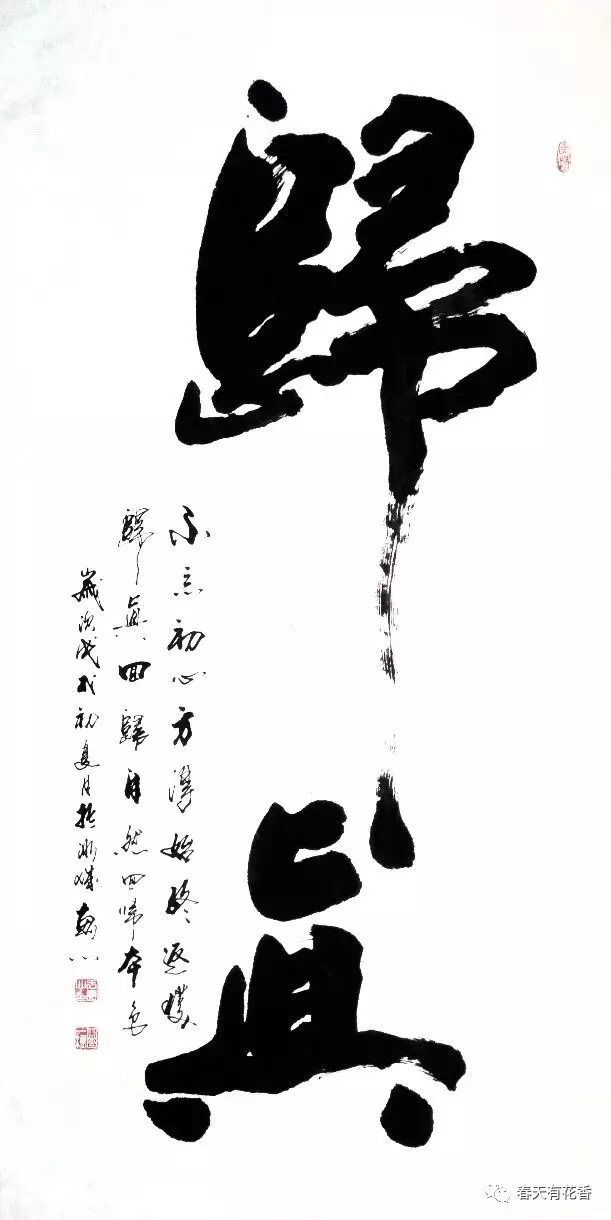 歸真
不忘初心方得始終返璞
歸真回歸自然回歸本色
歲次戊戌初夏月於
春天有花香